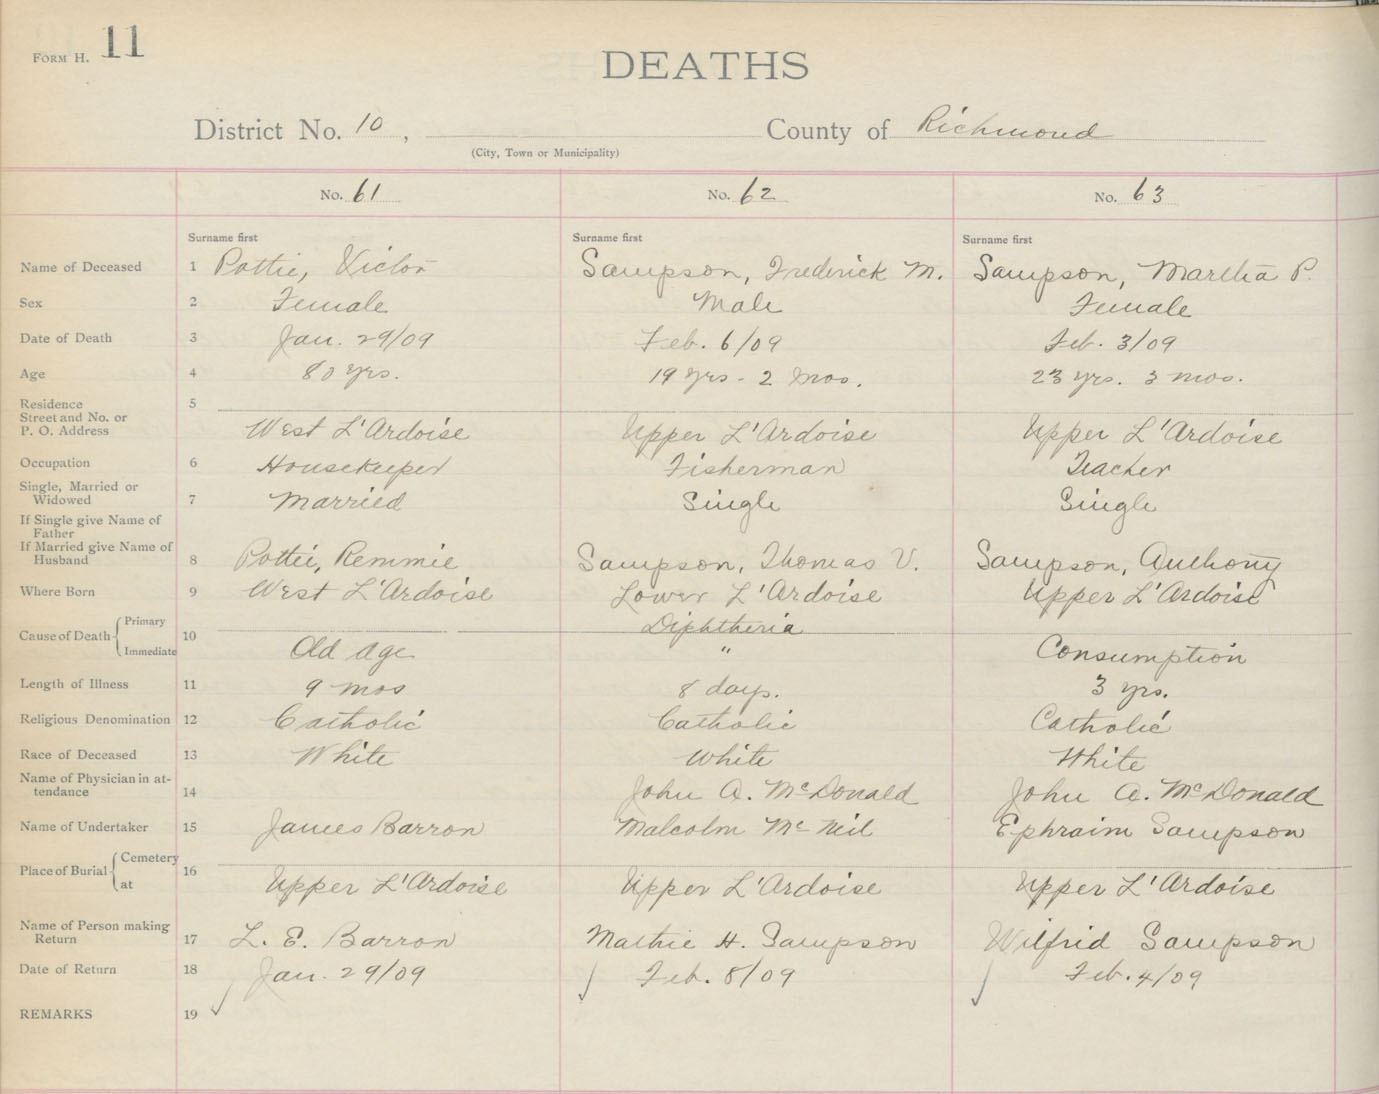 FORM H. 11
DEATHS
District No. 10, County of Richmond
(City, Town or Municipality)
No. 61 No. 62 No. 63
Surname first Surname first Surname first
Name of Deceased 1 Pottie, Victor Sampson, Frederick M. Sampson, Martha P.
Sex 2 Female Male Female
Date of Death 3 Jan. 29/09 Feb. 6/09 Feb. 3/09
Age 4 80 yrs. 19 yrs - 2 mos. 23 yrs. 3 mos.
Residence 5
Street and No. or
P. O. Address West L'Ardoise Upper L'Ardoise Upper L'Ardoise
Occupation 6 Housekeeper Fisherman Teacher
Single, Married or
Widowed 7 Married Single Single
If Single give Name of
Father
If Married give Name of
Husband 8 Pottie, Remmie Sampson, Thomas V. Sampson, Anthony
Where Born 9 West L'Ardoise Lower L'Ardoise Upper L'Ardoise
Cause of Death { Primary 10 Diphtheria
Immediate Old age " Consumption
Length of Illness 11 9 mos 8 days. 3 yrs.
Religious Denomination 12 Catholic Catholic Catholic
Race of Deceased 13 White White White
Name of Physician in at-
tendance 14 John A. McDonald John A. McDonald
Name of Undertaker 15 James Barron Malcolm McNeil Ephraim Sampson
Place of Burial { Cemetery 16
at Upper L'Ardoise Upper L'Ardoise Upper L'Ardoise
Name of Person making
Return 17 L. E. Barron H. Sampson Wilfrid Sampson
Date of Return 18 Jan. 29/09 Feb. 8/09 Feb. 4/09
REMARKS 19